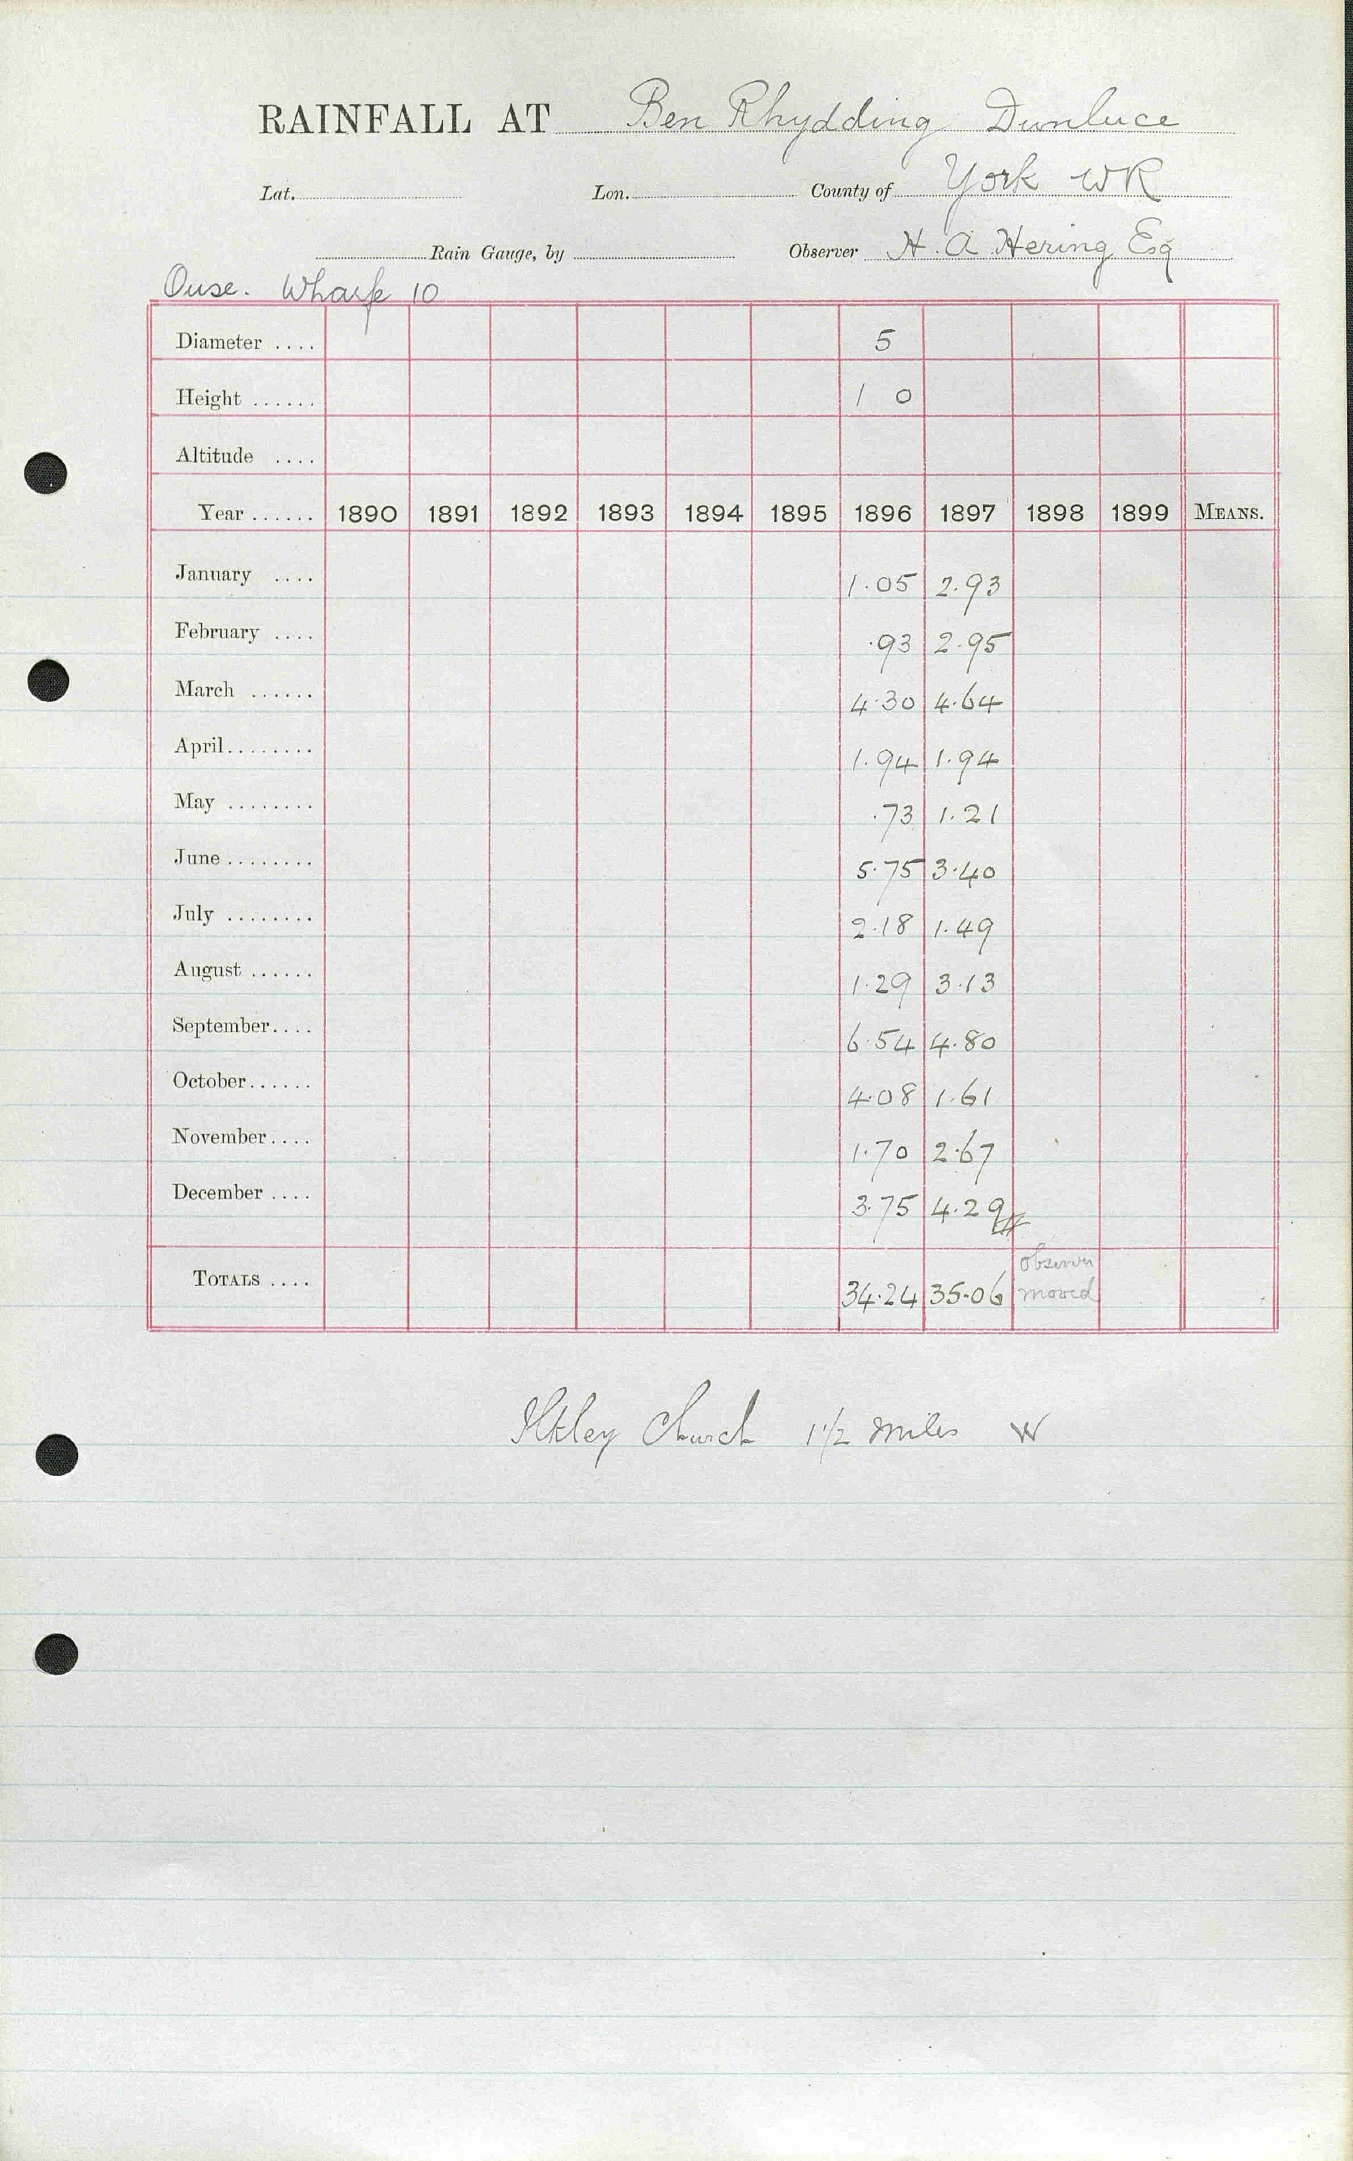 RAINFALL AT Ben Rhydding Dunluce
Lat. Lon. County of York WR
Rain Gauge, by Observer H. A. Hering Esq
Ouse. Wharfe 10
Diameter .... 5
Height ...... 1 0
Altitude ....
Year ...... 1890 1891 1892 1893 1894 1895 1896 1897 1898 1899 MEANS.
January .... 1.05 2.93
February .... .93 2.95
March ...... 4.30 4.64
April........ 1.94 1.94
May ........ .73 1.21
June ........ 5.75 3.40
July ........ 2.18 1.49
August ...... 1.29 3.13
September.... 6.54 4.80
October...... 4.08 1.61
November.... 1.70 2.67
December .... 3.75 4.29
TOTALS .... 34.24 35.06 observer moved
Ilkley Church 1 1/2 miles W